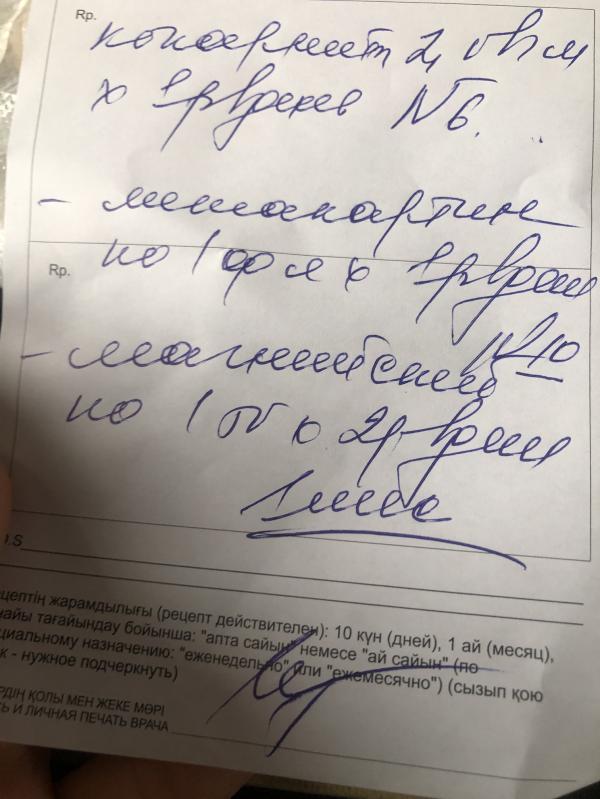 Rp.
кокарнит 2,0 в/м
х 1 р в день №6.
- метакартин
по 1 фл х 1 р в день
Rp.
№10
- магний
по 1 т х 2 р в день
1 мес
D.S
рецептің жарамдылығы (рецепт действителен): 10 күн (дней), 1 ай (месяц),
найы тағайындау бойынша: "апта сайын" немесе "ай сайын" (по
циальному назначению: "еженедельно" или "ежемесячно") (сызып қою
к - нужное подчеркнуть)
РДІҢ ҚОЛЫ МЕН ЖЕКЕ МӨРІ
Ь И ЛИЧНАЯ ПЕЧАТЬ ВРАЧА